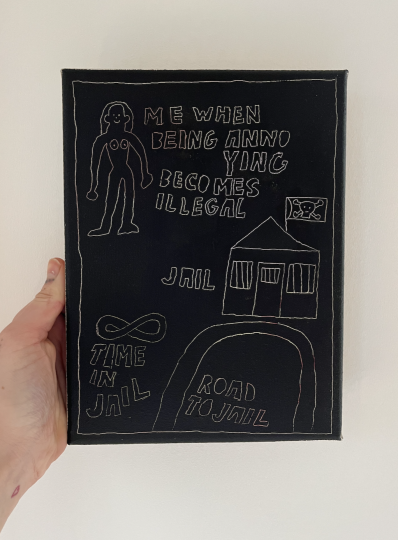 ME WHEN
BEING ANNO
YING
BECOMES
ILLEGAL
JAIL
TIME
IN
JAIL
ROAD
TO JAIL